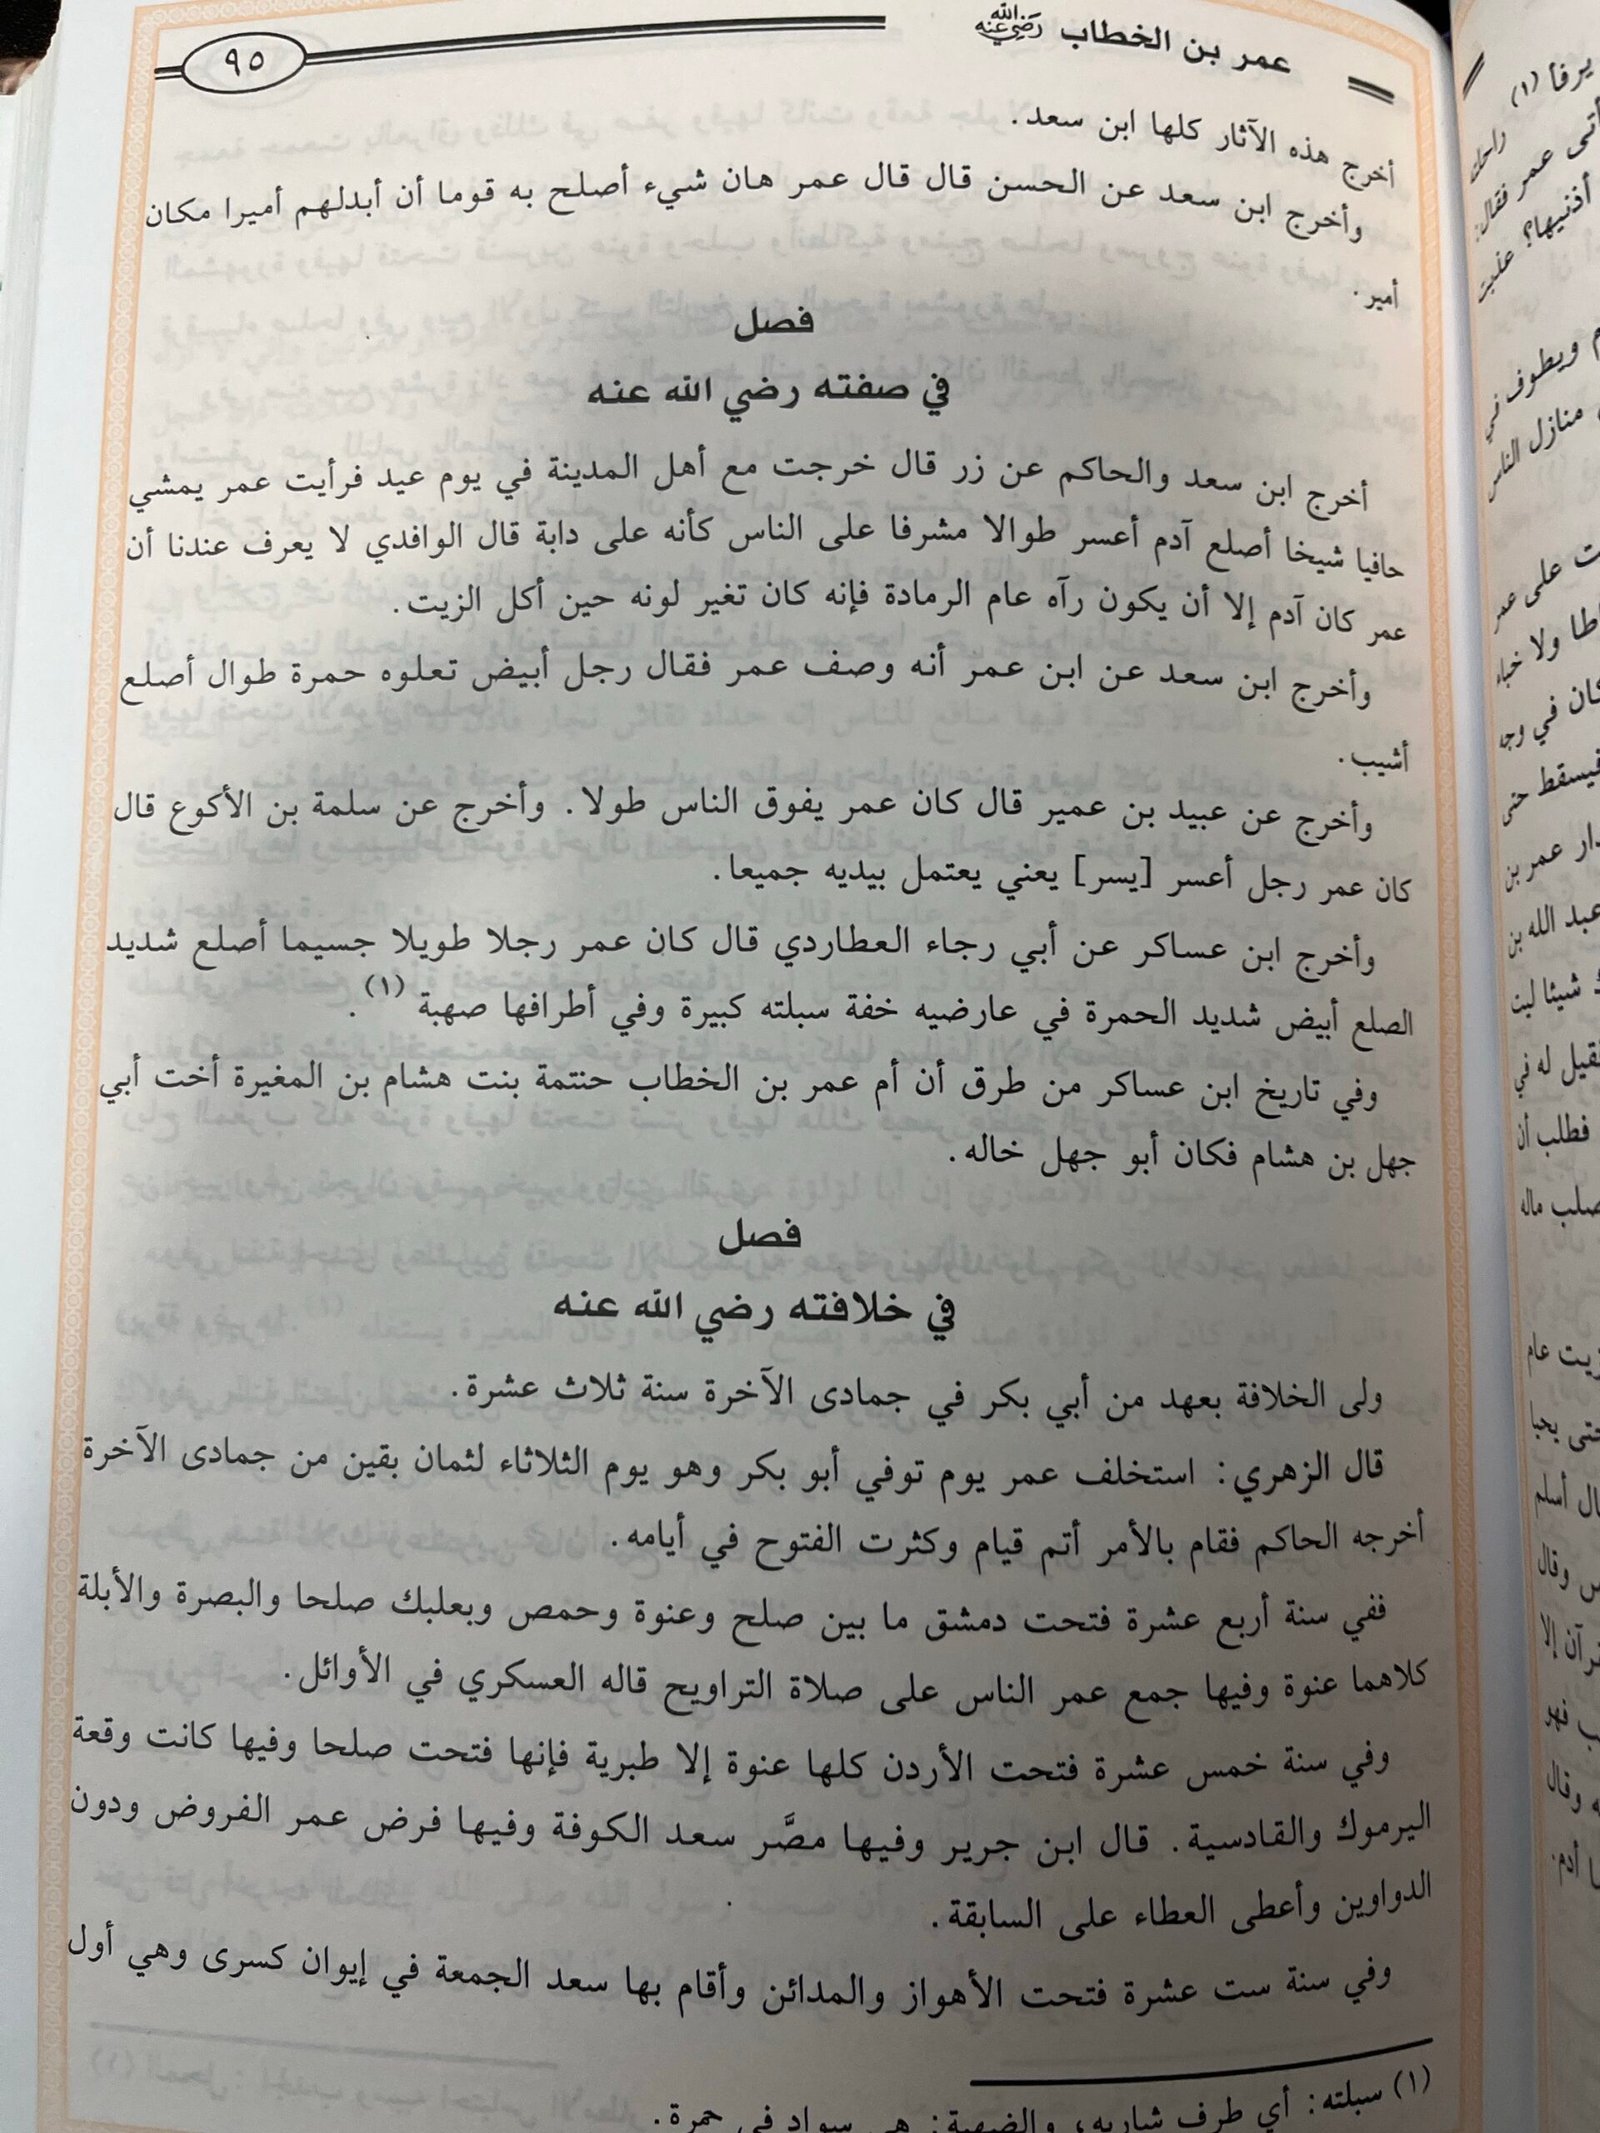 عمر بن الخطاب رضي الله عنه
٩٥
أخرج هذه الآثار كلها ابن سعد.
وأخرج ابن سعد عن الحسن قال قال عمر هان شيء أصلح به قوما أن أبدلهم أميرا مكان
أمير.
فصل
في صفته رضي الله عنه
أخرج ابن سعد والحاكم عن زر قال خرجت مع أهل المدينة في يوم عيد فرأيت عمر يمشي
حافيا شيخا أصلع آدم أعسر طوالا مشرفا على الناس كأنه على دابة قال الوافدي لا يعرف عندنا أن
عمر كان آدم إلا أن يكون رآه عام الرمادة فإنه كان تغير لونه حين أكل الزيت.
وأخرج ابن سعد عن ابن عمر أنه وصف عمر فقال رجل أبيض تعلوه حمرة طوال أصلع
أشيب.
وأخرج عن عبيد بن عمير قال كان عمر يفوق الناس طولا. وأخرج عن سلمة بن الأكوع قال
كان عمر رجل أعسر [يسر] يعني يعتمل بيديه جميعا.
وأخرج ابن عساكر عن أبي رجاء العطاردي قال كان عمر رجلا طويلا جسيما أصلع شديد
الصلع أبيض شديد الحمرة في عارضيه خفة سبلته كبيرة وفي أطرافها صهبة (١).
وفي تاريخ ابن عساكر من طرق أن أم عمر بن الخطاب حنتمة بنت هشام بن المغيرة أخت أبي
جهل بن هشام فكان أبو جهل خاله.
فصل
في خلافته رضي الله عنه
ولى الخلافة بعهد من أبي بكر في جمادى الآخرة سنة ثلاث عشرة.
قال الزهري: استخلف عمر يوم توفي أبو بكر وهو يوم الثلاثاء لثمان بقين من جمادى الآخرة
أخرجه الحاكم فقام بالأمر أتم قيام وكثرت الفتوح في أيامه.
ففي سنة أربع عشرة فتحت دمشق ما بين صلح وعنوة وحمص وبعلبك صلحا والبصرة والأبلة
كلاهما عنوة وفيها جمع عمر الناس على صلاة التراويح قاله العسكري في الأوائل.
وفي سنة خمس عشرة فتحت الأردن كلها عنوة إلا طبرية فإنها فتحت صلحا وفيها كانت وقعة
اليرموك والقادسية. قال ابن جرير وفيها مصَّر سعد الكوفة وفيها فرض عمر الفروض ودون
الدواوين وأعطى العطاء على السابقة.
وفي سنة ست عشرة فتحت الأهواز والمدائن وأقام بها سعد الجمعة في إيوان كسرى وهي أول
(١) سبلته: أي طرف شاربه، والصهبة: هي سواد في حمرة.
يرفأ (١)
راحلته
أتى عمر فقال:
أذنيها؟ عذبت
ويطوف في
منازل الناس
ت على عمر
ولا خباء
كان في وجه
فيسقط حتى
دار عمر بن
عبد الله بن
شيئا ليت
فقيل له في
فطلب أن
صلب ماله
عام
حتى يحيا
قال أسلم
وقال
إلا
فهو
وقال
آدم.